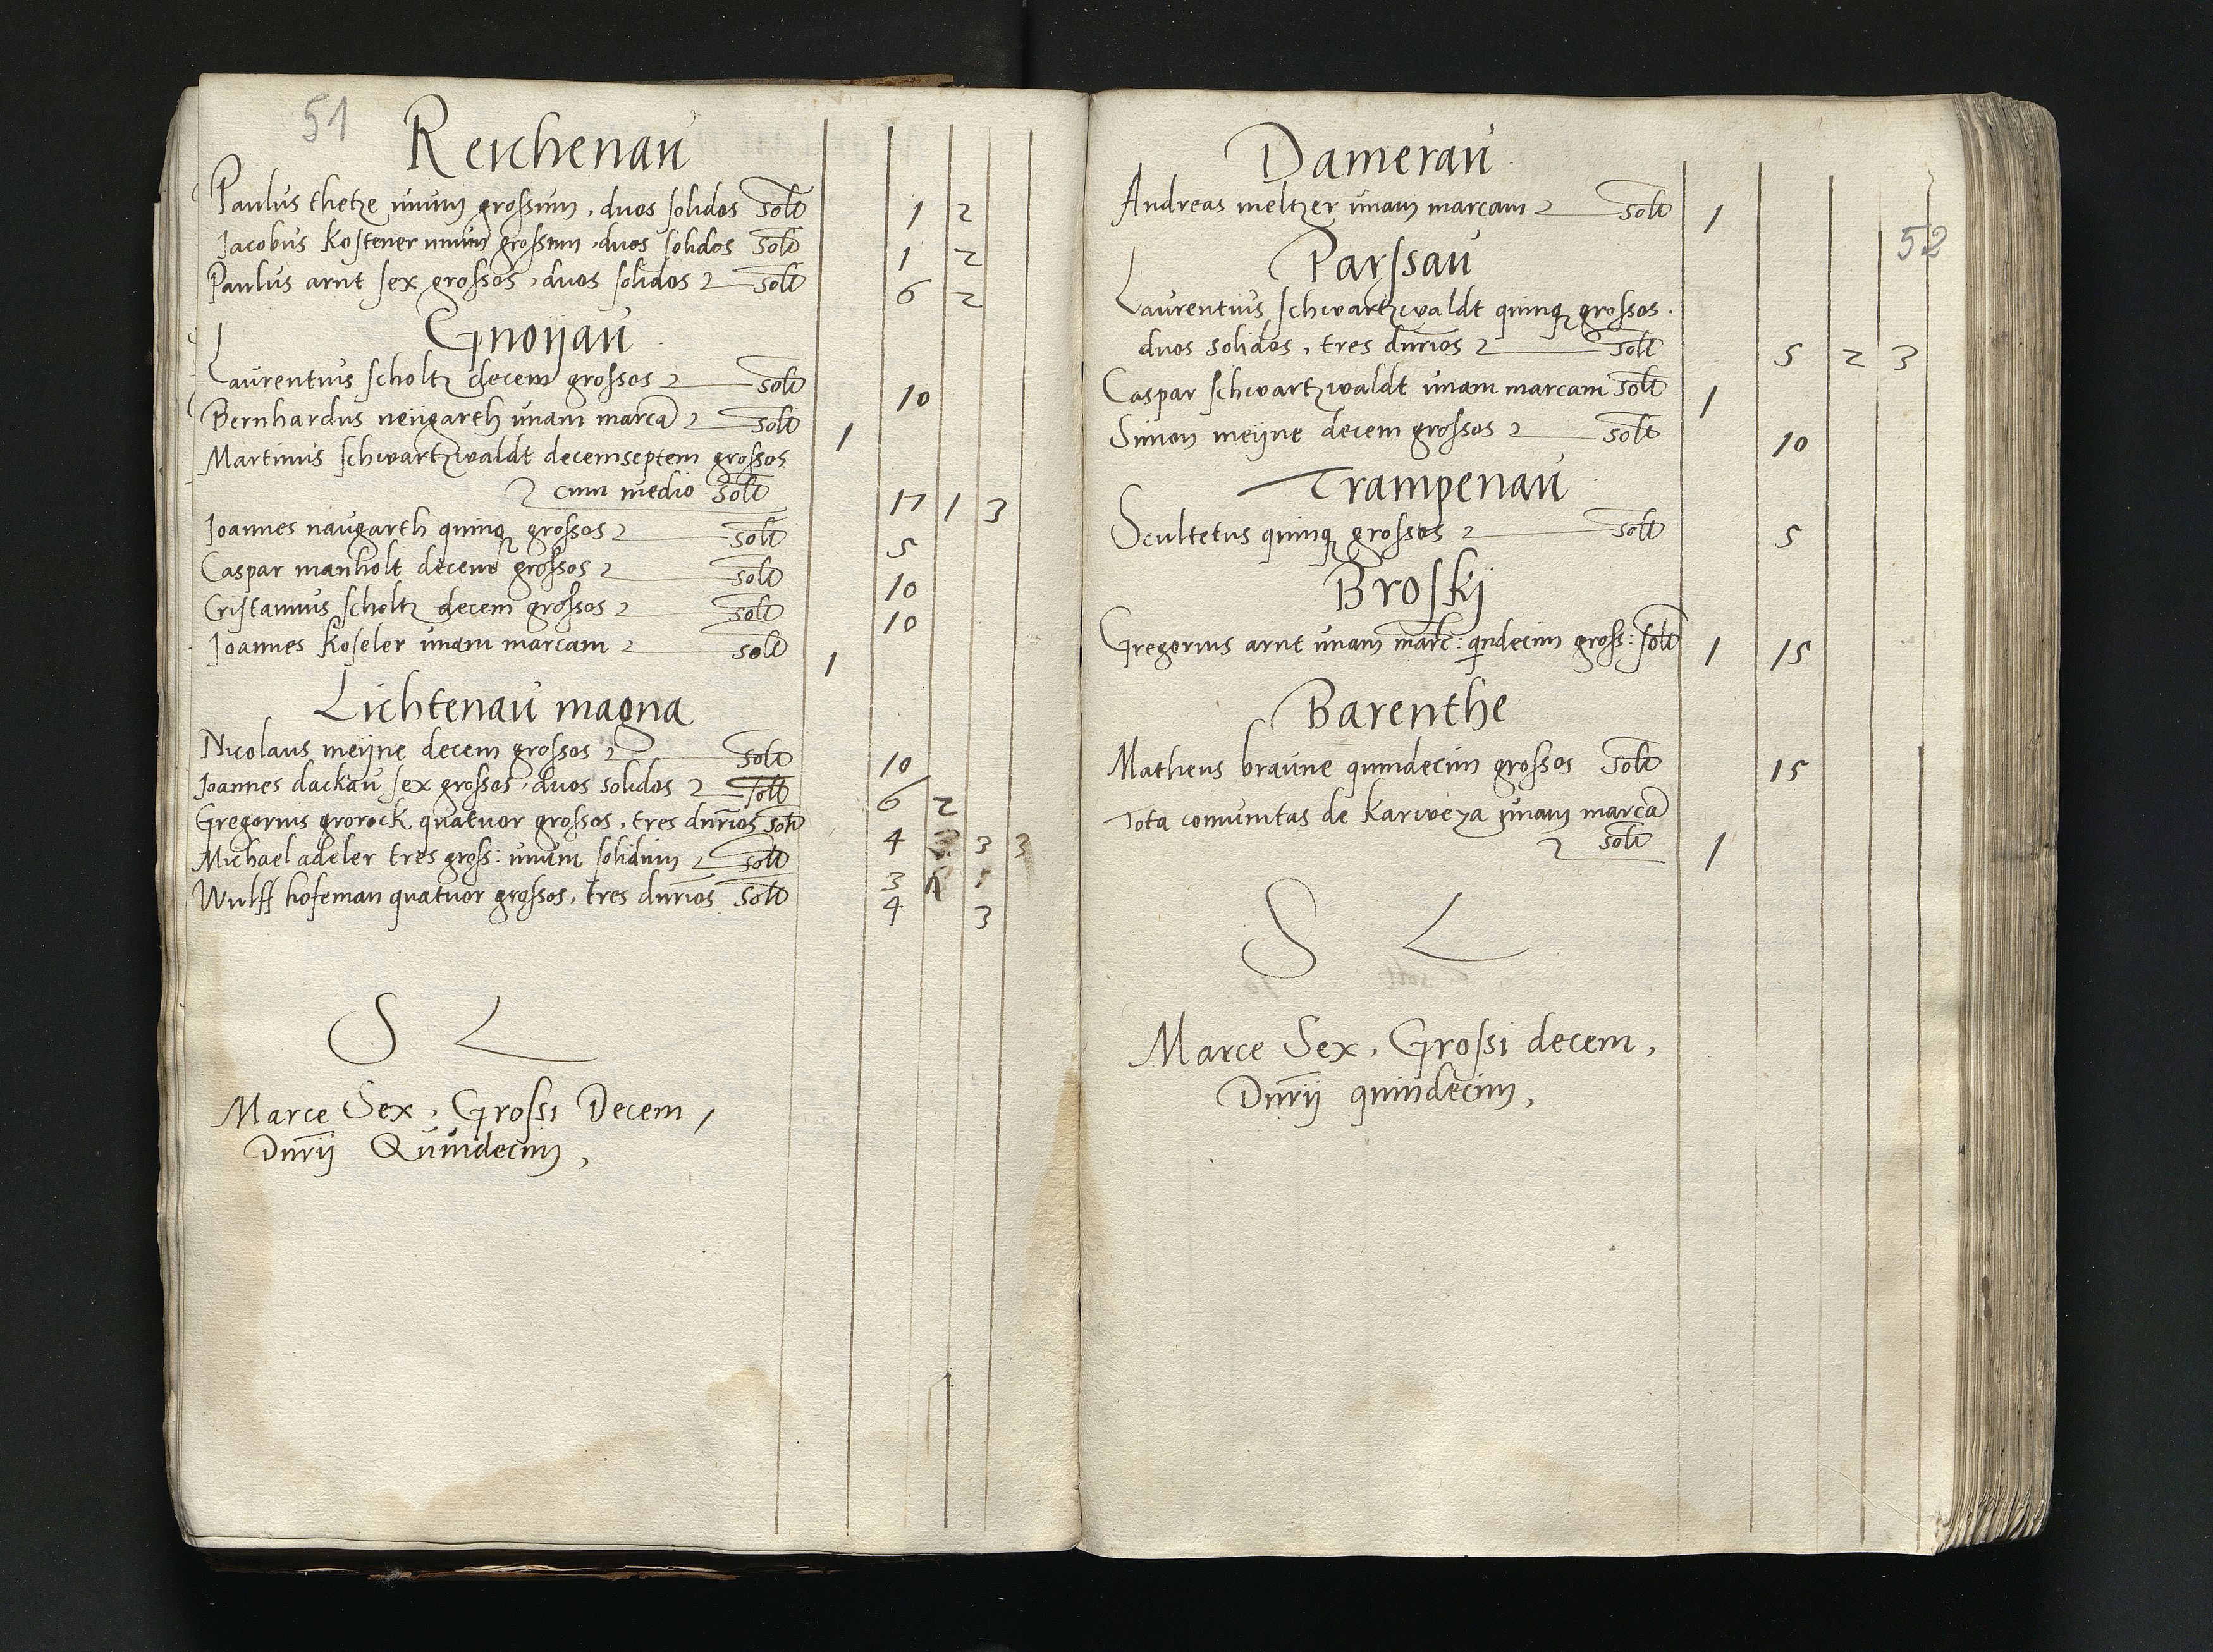 51
Reichenau
Paulus thetze unum grossum, duos solidos solt 1 2
Jacobus Kostener unum grossum, duos solidos solt 1 2
Paulus arnt sex grossos, duos solidos solt 6 2
Gnoijau
Laurentius scholtz decem grossos solt 10
Bernhardus neugarth unam marcā solt 1
Martinus schwartzwaldt decemseptem grossos
cum medio solt 17 1 3
Joannes naugarth quinqꝫ grossos solt 5
Caspar manholt decem grossos solt 10
Cristannus scholtz decem grossos solt 10
Joannes Koseler unam marcam solt 1
Lichtenau magna
Nicolaus meijne decem grossos solt 10
Joannes dackau sex grossos, duos solidos solt 6 2
Gregorius grorock quatuor grossos, tres dnrios solt 4 3 3
Michael adeler tres gross: unum solidum solt 3 1
Wulff hofeman quatuor grossos, tres dnrios solt 4 3
S L
Marce Sex, Grossi Decem,
Dnrij Quindecim,
Damerau
Andreas meltzer unam marcam solt 1
52
Parssau
Laurentius schwartzwaldt quinqꝫ grossos.
duos solidos, tres dnrios solt 5 2 3
Caspar schwartzwaldt unam marcam solt 1
Simon meijne decem grossos solt 10
Trampenau
Scultetus quinqꝫ grossos solt 5
Broskj
Gregorius arnt unam marc: qndecim gross: solt 1 15
Barenthe
Matheus braune quindecim grossos solt 15
Tota comunitas de Karweza unam marcā
solt 1
S L
Marce Sex, Grossi decem,
Dnrij quindecim,